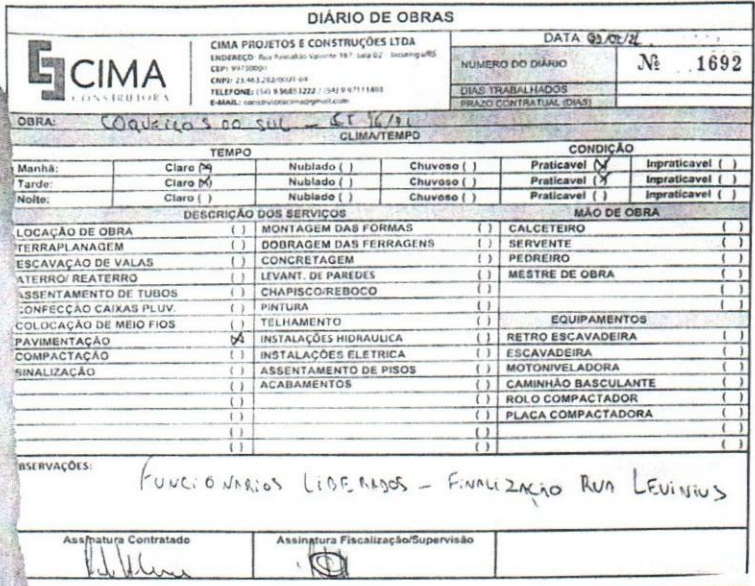 DIÁRIO DE OBRAS
CIMA
CONSTRUTORA
CIMA PROJETOS E CONSTRUÇÕES LTDA
ENDEREÇO:
CEP: 99730000
CNPJ: 23.463.282/0001-69
TELEFONE: (54) 9 9685 1222 / (54) 9 9711 1498
E-MAIL: construtoracima@gmail.com
DATA
NUMERO DO DIÁRIO Nº 1692
DIAS TRABALHADOS
PRAZO CONTRATUAL (DIAS)
OBRA: COQUEIROS DO SUL -
CLIMA/TEMPO
TEMPO CONDIÇÃO
Manhã: Claro (X) Nublado ( ) Chuvoso ( ) Praticavel (X) Inpraticavel ( )
Tarde: Claro (X) Nublado ( ) Chuvoso ( ) Praticavel (X) Inpraticavel ( )
Noite: Claro ( ) Nublado ( ) Chuvoso ( ) Praticavel ( ) Inpraticavel ( )
DESCRIÇÃO DOS SERVIÇOS MÃO DE OBRA
LOCAÇÃO DE OBRA ( ) MONTAGEM DAS FORMAS ( ) CALCETEIRO ( )
TERRAPLANAGEM ( ) DOBRAGEM DAS FERRAGENS ( ) SERVENTE ( )
ESCAVAÇÃO DE VALAS ( ) CONCRETAGEM ( ) PEDREIRO ( )
ATERRO/ REATERRO ( ) LEVANT. DE PAREDES ( ) MESTRE DE OBRA ( )
ASSENTAMENTO DE TUBOS ( ) CHAPISCO/REBOCO ( ) ( )
CONFECÇÃO CAIXAS PLUV. ( ) PINTURA ( ) ( )
COLOCAÇÃO DE MEIO FIOS ( ) TELHAMENTO ( ) EQUIPAMENTOS
PAVIMENTAÇÃO (X) INSTALAÇÕES HIDRAULICA ( ) RETRO ESCAVADEIRA ( )
COMPACTAÇÃO ( ) INSTALAÇÕES ELETRICA ( ) ESCAVADEIRA ( )
SINALIZAÇÃO ( ) ASSENTAMENTO DE PISOS ( ) MOTONIVELADORA ( )
( ) ACABAMENTOS ( ) CAMINHÃO BASCULANTE ( )
( ) ( ) ROLO COMPACTADOR ( )
( ) ( ) PLACA COMPACTADORA ( )
( ) ( ) ( )
BSERVAÇÕES:
FUNCIONARIOS LIBERADOS - FINALIZAÇÃO RUA LEVINIUS
Assinatura Contratado Assinatura Fiscalização/Supervisão